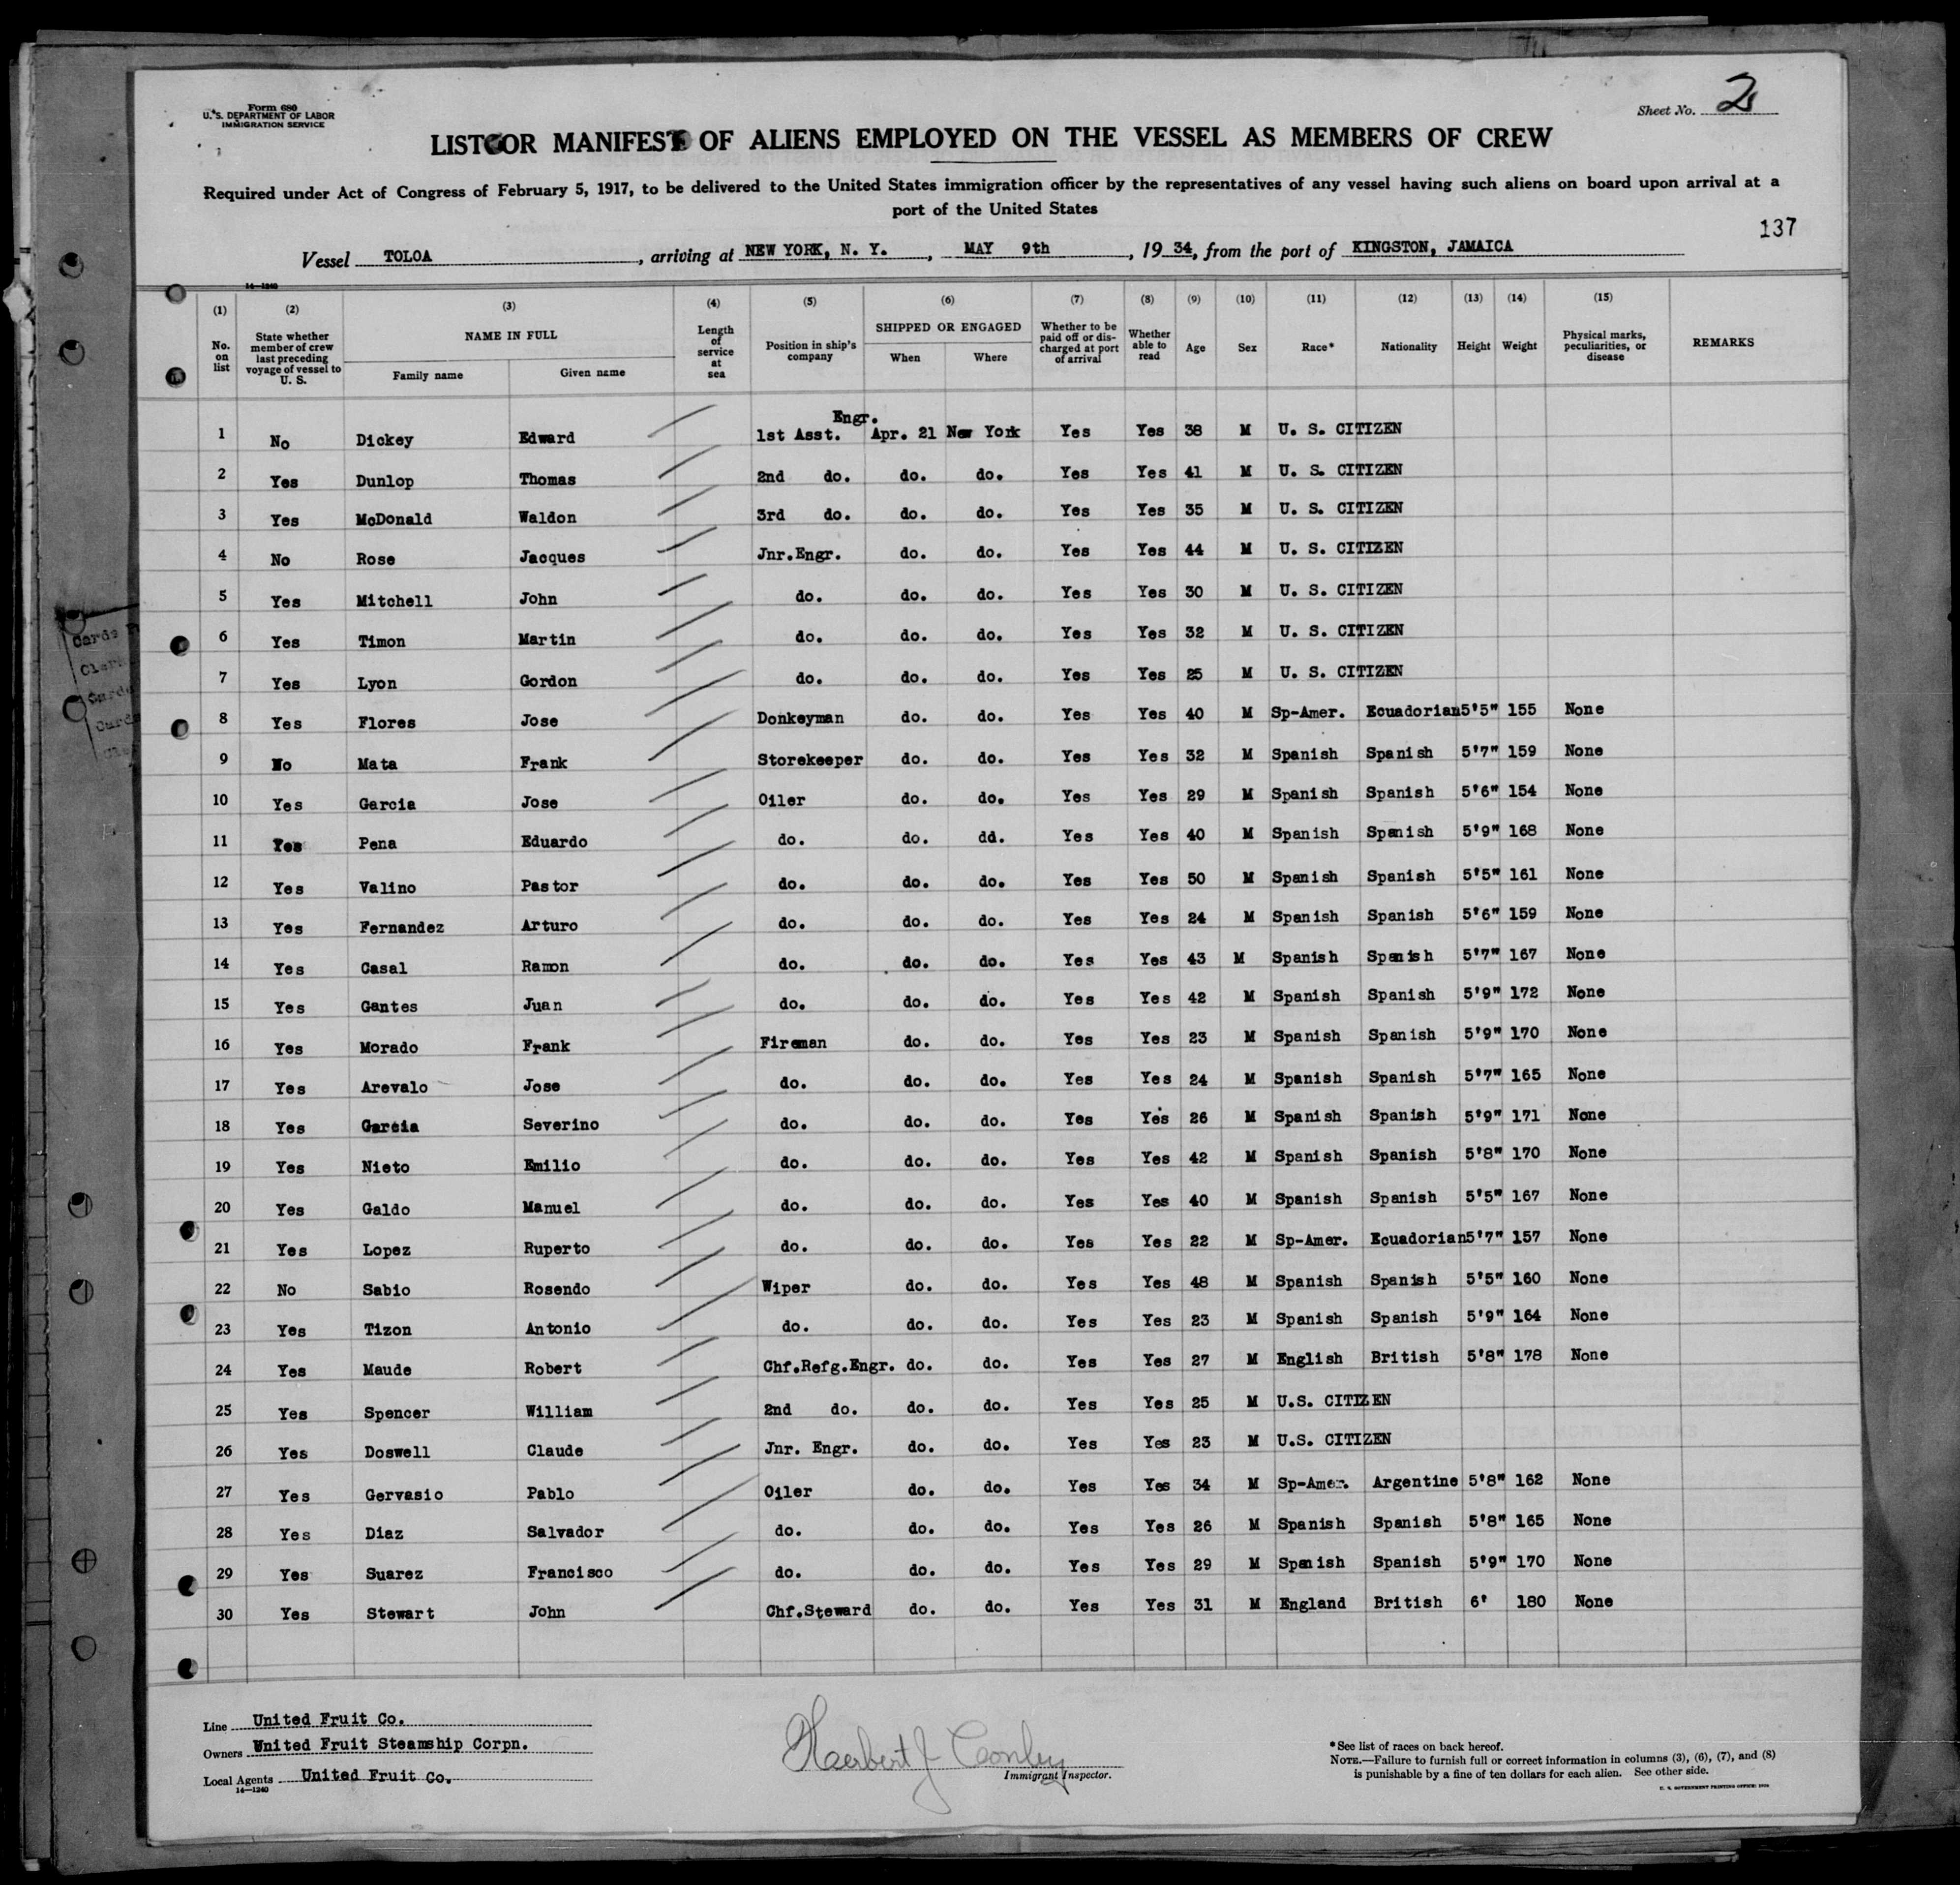 Form 680
U. S. DEPARTMENT OF LABOR
IMMIGRATION SERVICE
Sheet No. 2
LIST OR MANIFEST OF ALIENS EMPLOYED ON THE VESSEL AS MEMBERS OF CREW
Required under Act of Congress of February 5, 1917, to be delivered to the United States immigration officer by the representatives of any vessel having such aliens on board upon arrival at a
port of the United States
137
Vessel TOLOA, arriving at NEW YORK, N. Y., MAY 9th, 19 34, from the port of KINGSTON, JAMAICA
14—1240
(1) No. on list (2) State whether member of crew last preceding voyage of vessel to U. S. (3) NAME IN FULL Family name Given name (4) Length of service at sea (5) Position in ship's company (6) SHIPPED OR ENGAGED When Where (7) Whether to be paid off or discharged at port of arrival (8) Whether able to read (9) Age (10) Sex (11) Race* (12) Nationality (13) Height (14) Weight (15) Physical marks, peculiarities, or disease REMARKS
1 No Dickey Edward 1st Asst. Engr. Apr. 21 New York Yes Yes 38 M U. S. CITIZEN
2 Yes Dunlop Thomas 2nd do. do. do. Yes Yes 41 M U. S. CITIZEN
3 Yes McDonald Waldon 3rd do. do. do. Yes Yes 35 M U. S. CITIZEN
4 No Rose Jacques Jnr.Engr. do. do. Yes Yes 44 M U. S. CITIZEN
5 Yes Mitchell John do. do. do. Yes Yes 30 M U. S. CITIZEN
6 Yes Timon Martin do. do. do. Yes Yes 32 M U. S. CITIZEN
7 Yes Lyon Gordon do. do. do. Yes Yes 25 M U. S. CITIZEN
8 Yes Flores Jose Donkeyman do. do. Yes Yes 40 M Sp-Amer. Ecuadorian 5'5" 155 None
9 No Mata Frank Storekeeper do. do. Yes Yes 32 M Spanish Spanish 5'7" 159 None
10 Yes Garcia Jose Oiler do. do. Yes Yes 29 M Spanish Spanish 5'6" 154 None
11 Yes Pena Eduardo do. do. dd. Yes Yes 40 M Spanish Spanish 5'9" 168 None
12 Yes Valino Pastor do. do. do. Yes Yes 50 M Spanish Spanish 5'5" 161 None
13 Yes Fernandez Arturo do. do. do. Yes Yes 24 M Spanish Spanish 5'6" 159 None
14 Yes Casal Ramon do. do. do. Yes Yes 43 M Spanish Spanish 5'7" 167 None
15 Yes Gantes Juan do. do. do. Yes Yes 42 M Spanish Spanish 5'9" 172 None
16 Yes Morado Frank Fireman do. do. Yes Yes 23 M Spanish Spanish 5'9" 170 None
17 Yes Arevalo Jose do. do. do. Yes Yes 24 M Spanish Spanish 5'7" 165 None
18 Yes Garcia Severino do. do. do. Yes Yes 26 M Spanish Spanish 5'9" 171 None
19 Yes Nieto Emilio do. do. do. Yes Yes 42 M Spanish Spanish 5'8" 170 None
20 Yes Galdo Manuel do. do. do. Yes Yes 40 M Spanish Spanish 5'5" 167 None
21 Yes Lopez Ruperto do. do. do. Yes Yes 22 M Sp-Amer. Ecuadorian 5'7" 157 None
22 No Sabio Rosendo Wiper do. do. Yes Yes 48 M Spanish Spanish 5'5" 160 None
23 Yes Tizon Antonio do. do. do. Yes Yes 23 M Spanish Spanish 5'9" 164 None
24 Yes Maude Robert Chf.Refg.Engr. do. do. Yes Yes 27 M English British 5'8" 178 None
25 Yes Spencer William 2nd do. do. do. Yes Yes 25 M U.S. CITIZEN
26 Yes Doswell Claude Jnr. Engr. do. do. Yes Yes 23 M U.S. CITIZEN
27 Yes Gervasio Pablo Oiler do. do. Yes Yes 34 M Sp-Amer. Argentine 5'8" 162 None
28 Yes Diaz Salvador do. do. do. Yes Yes 26 M Spanish Spanish 5'8" 165 None
29 Yes Suarez Francisco do. do. do. Yes Yes 29 M Spanish Spanish 5'9" 170 None
30 Yes Stewart John Chf.Steward do. do. Yes Yes 31 M England British 6' 180 None
Line United Fruit Co.
Owners United Fruit Steamship Corpn.
Local Agents United Fruit Co.
14—1240
Herbert J Conley
Immigrant Inspector.
*See list of races on back hereof.
NOTE.—Failure to furnish full or correct information in columns (3), (6), (7), and (8)
is punishable by a fine of ten dollars for each alien. See other side.